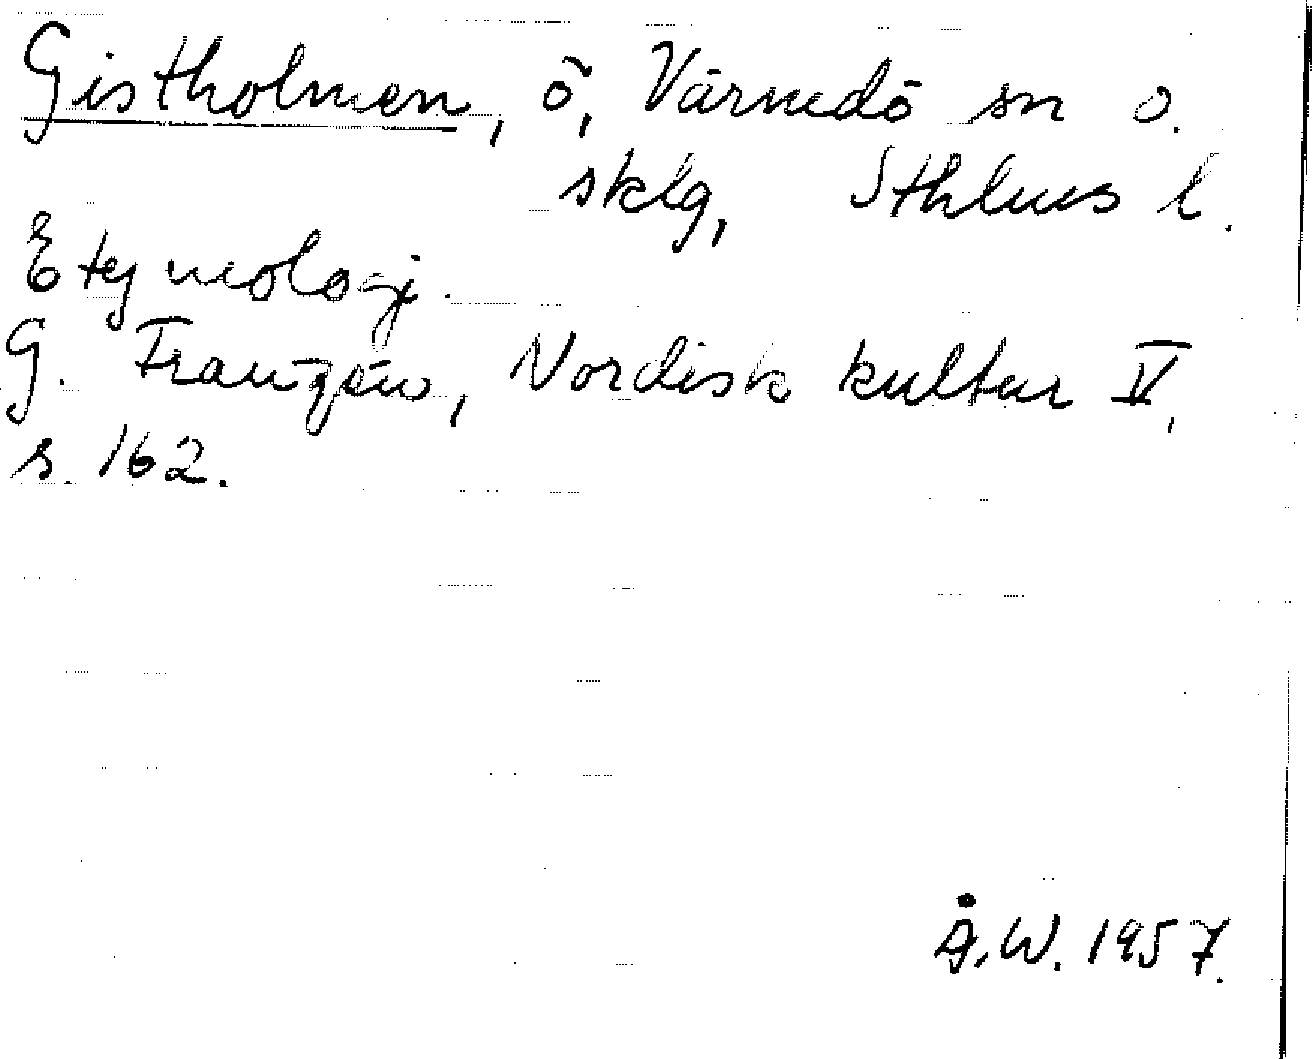 Gistholmen, ö, Värmdö sn o.
sklg, Sthlms l.
Etymologi.
G. Franzén, Nordisk kultur V,
s. 162.
Å.W. 1957.